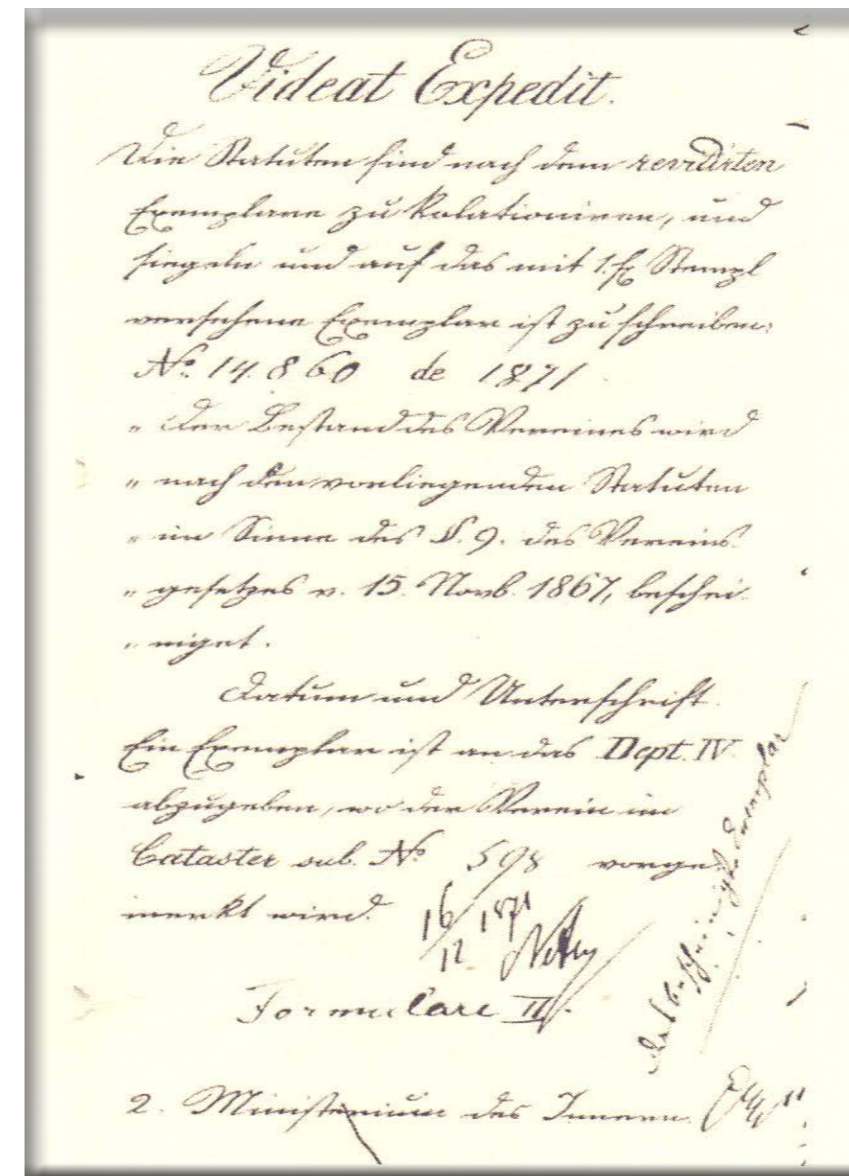 Videat Expedit.
Die Statuten sind nach dem revidirten
Exemplare zu kolationiren, und
siegeln und auf das mit 1 f Stempl
versehene Exemplar ist zu schreiben:
No. 14.860 de 1871
„ Der Bestand des Vereines wird
„ nach den vorliegenden Statuten
„ im Sinne des §. 9. des Vereins-
„ gesetzes v. 15. Novb. 1867, beschei-
„ niget.
Datum und Unterschrift.
Ein Exemplar ist an das Dept. IV.
abzugeben, wo der Verein im
Cataster sub. No 598 vorge-
merkt wird.
16/12 1871
Formulare II.
das bescheinigte Exemplar
2. Ministerium des Innern